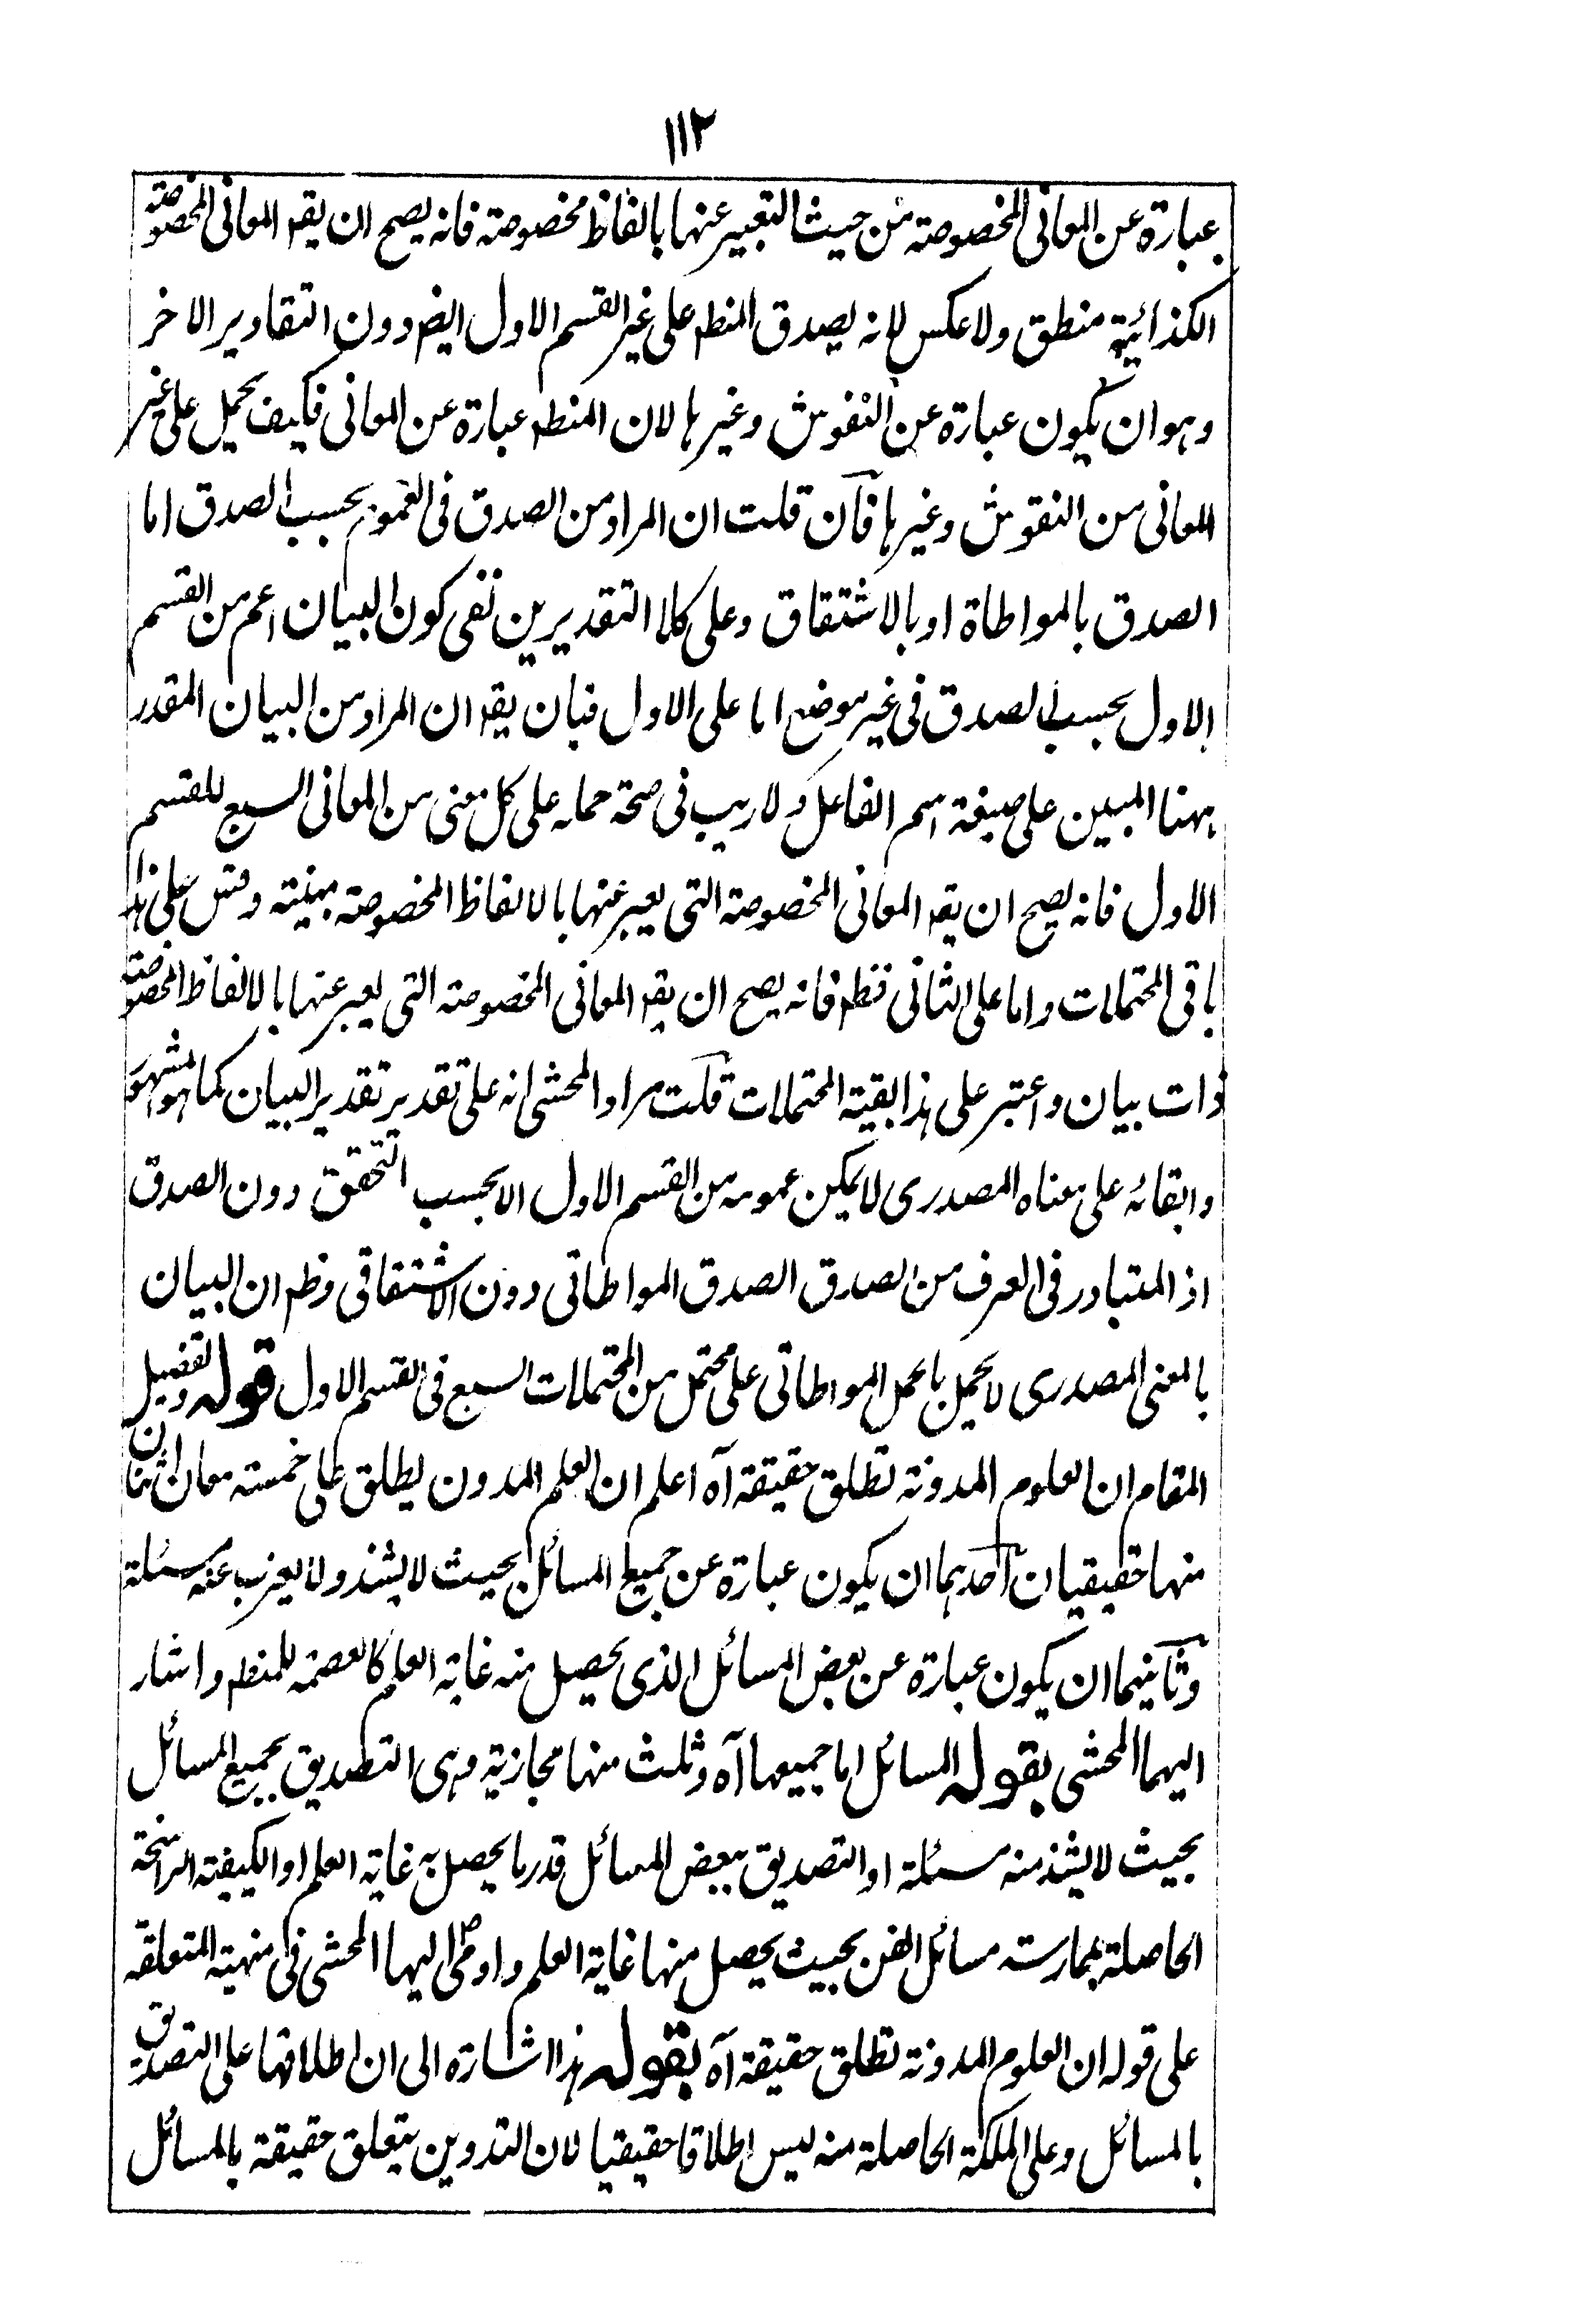 ١١٢
عبارة عن المعانى المخصوصة من حيث التعبير عنها بالفاظ مخصوصة فانه يصح ان يقہ المعانى المخصوصة
الكذائية منطق ولا عكس لانه يصدق المنطہ على غير القسم الاول ايضہ دون التقادير الاخر
وهو ان يكون عبارة عن النقوش وغيرها لان المنطہ عبارة عن المعانى فكيف يحمل على غير
المعانى من النقوش وغيرها فان قلت ان المراد من الصدق فى العموم بحسب الصدق اما
الصدق بالمواطاة او بالاشتقاق وعلى كلا التقديرين نفى كون البيان اعم من القسم
الاول بحسب الصدق فى غير موضع اما على الاول فبان يقہ ان المراد من البيان المقدر
ههنا المبين على صيغة اسم الفاعل ولا ريب فى صحة حمله على كل معنى من المعانى السبع للقسم
الاول فانه يصح ان يقہ المعانى المخصوصة التى يعبر عنها بالالفاظ المخصوصة مبينة وقس على هذا
باقى المحتملات واما على الثانى فظہ فانه يصح ان يقہ المعانى المخصوصة التى يعبر عنها بالالفاظ المخصوصة
ذات بيان واعتبر على هذا بقية المحتملات قلت مراد المحشى انه على تقدير تقدير البيان كما هو المشهور
وابقائه على معناه المصدرى لا يمكن عمومه من القسم الاول الا بحسب التحقق دون الصدق
اذ المتبادر فى العرف من الصدق الصدق المواطاتى دون الاشتقاقى وظہ ان البيان
بالمعنى المصدرى لا يحمل بالحمل المواطاتى على محتمل من المحتملات السبع فى القسم الاول قوله وتفصيل
المقام ان العلوم المدونة تطلق حقيقة آه اعلم ان العلم المدون يطلق على خمسة معان اثنان
منها حقيقيان احدهما ان يكون عبارة عن جميع المسائل بحيث لا يشذ ولا يعزب عنه مسئلة
وثانيهما ان يكون عبارة عن بعض المسائل الذى يحصل منه غاية العلم كالعصمة للمنطہ واشار
اليهما المحشى بقوله المسائل اما جميعها آه وثلث منها مجازية وهى التصديق بجميع المسائل
بحيث لا يشذ منه مسئلة او التصديق ببعض المسائل قدر ما يحصل به غاية العلم او الكيفية الراسخة
الحاصلة بممارسة مسائل الفن بحيث يحصل منها غاية العلم واومى اليها المحشى فى منهية المتعلقة
على قوله ان العلوم المدونة تطلق حقيقة آه بقوله هذا اشارة الى ان اطلاقها على التصديق
بالمسائل وعلى الملكة الحاصلة منه ليس اطلاقا حقيقيا لان التدوين يتعلق حقيقة بالمسائل